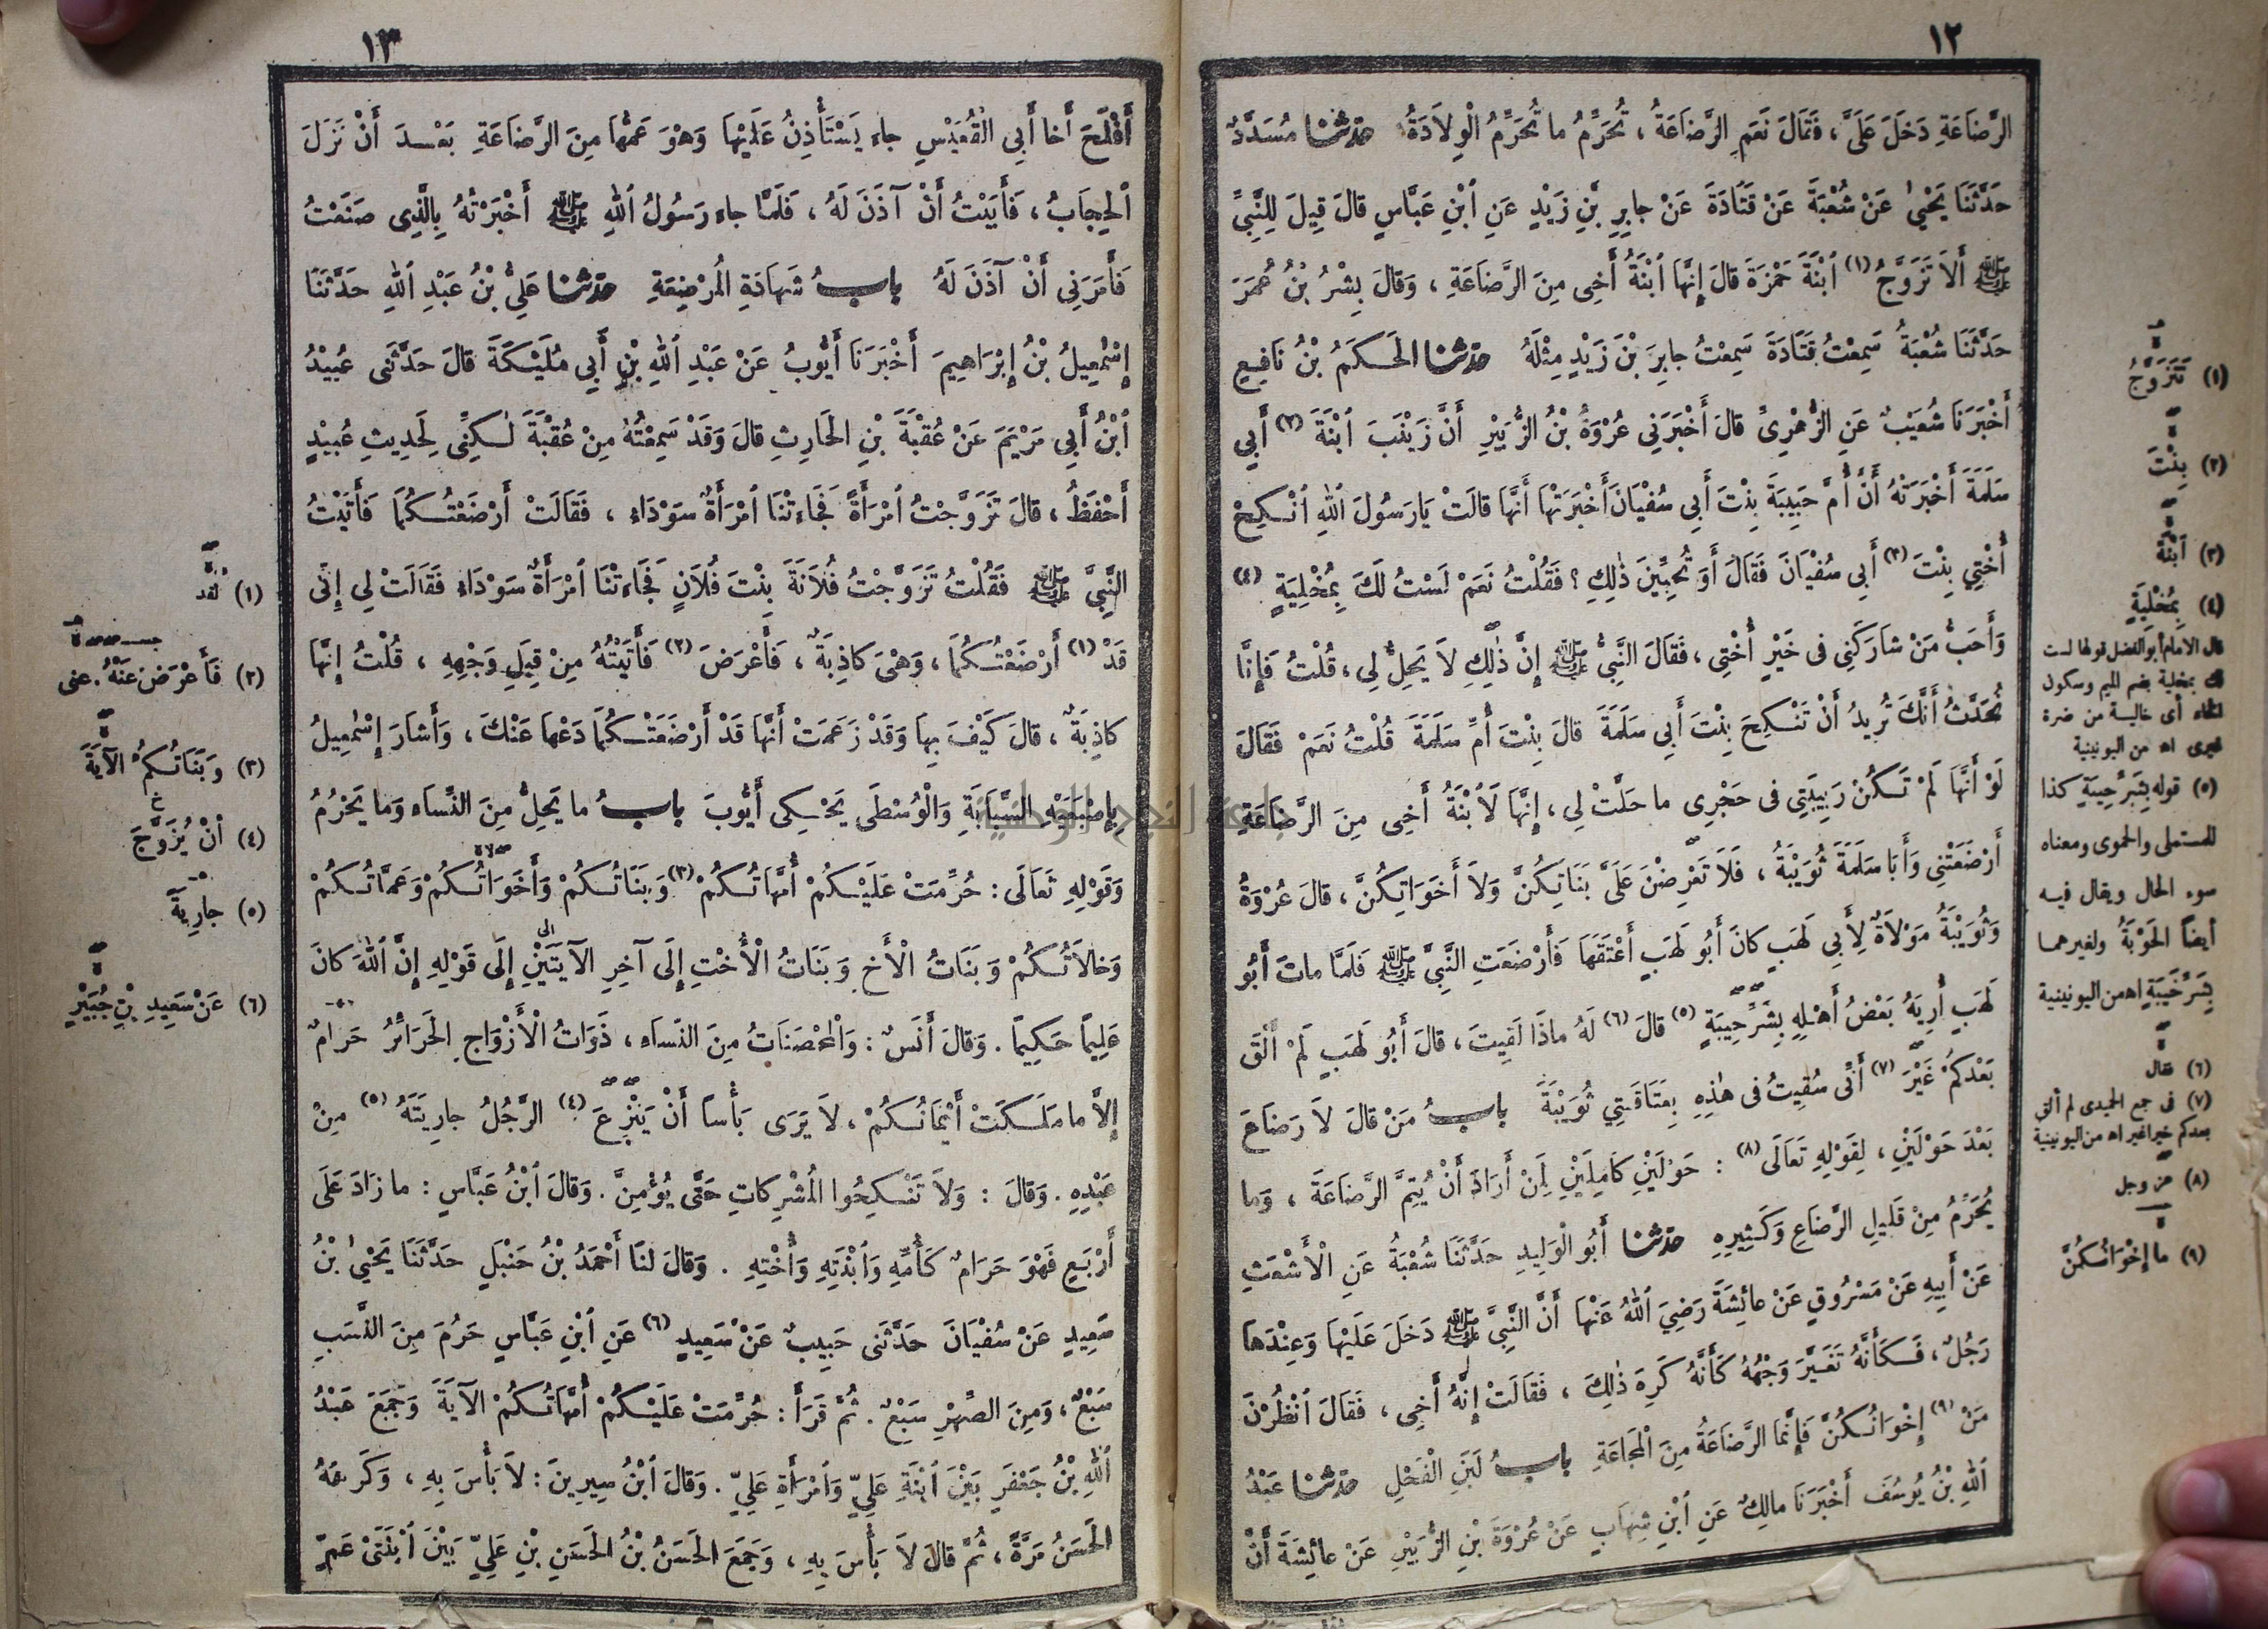 ١٢
الرَّضَاعَةِ دَخَلَ عَلَىَّ ، فَقَالَ نَعَمِ الرَّضَاعَةُ ، تُحَرِّمُ ما تُحَرِّمُ الْوِلاَدَةُ حدثنا مُسَدَّدٌ
حَدَّثَنَا يَحْيٰى عَنْ شُعْبَةَ عَنْ قَتَادَةَ عَنْ جابِرِ بْنِ زَيْدٍ عَنِ ٱبْنِ عَبَّاسٍ قالَ قِيلَ لِلنَّبِيِّ
ﷺ أَلاَ تَزَوَّجُ (١) ٱبْنَةَ حَمْزَةَ قالَ إِنَّهَا ٱبْنَةُ أَخِى مِنَ الرَّضَاعَةِ ، وَقالَ بِشْرُ بْنُ عُمَرَ
حَدَّثَنَا شُعْبَةُ سَمِعْتُ قَتَادَةَ سَمِعْتُ جابِرَ بْنَ زَيْدٍ مِثْلَهُ حدثنا الحَكَمُ بْنُ نَافِعٍ
أَخْبَرَنَا شُعَيْبٌ عَنِ الزُّهْرِىِّ قالَ أَخْبَرَنِى عُرْوَةُ بْنُ الزُّبَيْرِ أَنَّ زَيْنَبَ ٱبْنَةَ (٢) أَبِى
سَلَمَةَ أَخْبَرَتْهُ أَنَّ أُمَّ حَبِيبَةَ بِنْتَ أَبِى سُفْيَانَ أَخْبَرَتْهَا أَنَّهَا قالَتْ يَا رَسُولَ ٱللهِ ٱنْكِحْ
أُخْتِي بِنْتَ (٣) أَبِى سُفْيَانَ فَقَالَ أَوَ تُحِبِّينَ ذٰلِكِ ؟ فَقُلْتُ نَعَمْ لَسْتُ لَكَ بِمُخْلِيَةٍ (٤)
وَأَحَبُّ مَنْ شارَكَنِى فى خَيْرٍ أُخْتِى ، فَقَالَ النَّبِىُّ ﷺ إِنَّ ذٰلِكِ لاَ يَحِلُّ لِى ، قُلْتُ فَإِنَّا
نُحَدَّثُ أَنَّكَ تُرِيدُ أَنْ تَنْكِحَ بِنْتَ أَبِى سَلَمَةَ قالَ بِنْتَ أُمِّ سَلَمَةَ قُلْتُ نَعَمْ فَقَالَ
لَوْ أَنَّهَا لَمْ تَكُنْ رَبِيبَتِى فى حَجْرِى ما حَلَّتْ لِى ، إِنَّهَا لَاُبْنَةُ أَخِى مِنَ الرَّضَاعَةِ
أَرْضَعَتْنِى وَأَبَا سَلَمَةَ ثُوَيْبَةُ ، فَلاَ تَعْرِضْنَ عَلَىَّ بَنَاتِكُنَّ وَلاَ أَخَوَاتِكُنَّ ، قالَ عُرْوَةُ
وَثُوَيْبَةُ مَوْلاَةٌ لِأَبِى لَهَبٍ كانَ أَبُو لَهَبٍ أَعْتَقَهَا فَأَرْضَعَتِ النَّبِىَّ ﷺ فَلَمَّا ماتَ أَبُو
لَهَبٍ أُرِيَهُ بَعْضُ أَهْلِهِ بِشَرِّ حِيبَةٍ (٥) قالَ (٦) لَهُ ماذَا لَقِيتَ ، قالَ أَبُو لَهَبٍ لَمْ أَلْقَ
بَعْدَكُمْ غَيْرَ (٧) أَنِّى سُقِيتُ فى هٰذِهِ بِعَتَاقَتِي ثُوَيْبَةَ بابُ مَنْ قالَ لاَ رَضَاعَ
بَعْدَ حَوْلَيْنِ ، لِقَوْلِهِ تَعَالَى (٨) : حَوْلَيْنِ كامِلَيْنِ لِمَنْ أَرَادَ أَنْ يُتِمَّ الرَّضَاعَةَ ، وَما
يُحَرِّمُ مِنْ قَلِيلِ الرَّضَاعِ وَكَثِيرِهِ حدثنا أَبُو الْوَلِيدِ حَدَّثَنَا شُعْبَةُ عَنِ الْأَشْعَثِ
عَنْ أَبِيهِ عَنْ مَسْرُوقٍ عَنْ عائِشَةَ رَضِيَ ٱللهُ عَنْهَا أَنَّ النَّبِىَّ ﷺ دَخَلَ عَلَيْهَا وَعِنْدَهَا
رَجُلٌ ، فَكَأَنَّهُ تَغَيَّرَ وَجْهُهُ كَأَنَّهُ كَرِهَ ذٰلِكَ ، فَقَالَتْ إِنَّهُ أَخِى ، فَقَالَ ٱنْظُرْنَ
مَنْ (٩) إِخْوَانُكُنَّ فَإِنَّمَا الرَّضَاعَةُ مِنَ الْمَجَاعَةِ بابُ لَبَنِ الْفَحْلِ حدثنا عَبْدُ
ٱللهِ بْنُ يُوسُفَ أَخْبَرَنَا مالِكٌ عَنِ ٱبْنِ شِهَابٍ عَنْ عُرْوَةَ بْنِ الزُّبَيْرِ عَنْ عائِشَةَ أَنَّ
(١) تَتَزَوَّجُ
(٢) بِنْتَ
(٣) ٱبْنَةَ
(٤) بِمُخْلِيَةٍ
قال الامام أبو الفضل قولها لست
لك بمخلية بضم الميم وسكون
الخاء أى خالية من ضرة
غيرى اه من اليونينية
(٥) قوله بِشَرِّ حِيبَةٍ كذا
للمستملى والحموى ومعناه
سوء الحال ويقال فيه
أيضاً الحَوْبَةُ ولغيرهما
بِشَرِّ خَيْبَةٍ اه من اليونينية
(٦) فقال
(٧) فى جمع الحميدى لم ألق
بعدكم خيرا غير اه من اليونينية
(٨) عز وجل
(٩) ما إِخْوَانُكُنَّ
١٣
أَفْلَحَ أَخا أَبِى الْقُعَيْسِ جاء يَسْتَأْذِنُ عَلَيْهَا وَهْوَ عَمُّهَا مِنَ الرَّضَاعَةِ بَعْدَ أَنْ نَزَلَ
ٱلْحِجَابُ ، فَأَبَيْتُ أَنْ آذَنَ لَهُ ، فَلَمَّا جاء رَسُولُ ٱللهِ ﷺ أَخْبَرْتُهُ بِالَّذِى صَنَعْتُ
فَأَمَرَنِى أَنْ آذَنَ لَهُ بابُ شَهَادَةِ المُرْضِعَةِ حدثنا عَلِىُّ بْنُ عَبْدِ ٱللهِ حَدَّثَنَا
إِسْمٰعِيلُ بْنُ إِبْرَاهِيمَ أَخْبَرَنَا أَيُّوبُ عَنْ عَبْدِ ٱللهِ بْنِ أَبِى مُلَيْكَةَ قالَ حَدَّثَنِى عُبَيْدُ
ٱبْنُ أَبِى مَرْيَمَ عَنْ عُقْبَةَ بْنِ الحَارِثِ قالَ وَقَدْ سَمِعْتُهُ مِنْ عُقْبَةَ لٰكِنِّى لِحَدِيثِ عُبَيْدٍ
أَحْفَظُ ، قالَ تَزَوَّجْتُ ٱمْرَأَةً فَجَاءتْنَا ٱمْرَأَةٌ سَوْدَاء ، فَقَالَتْ أَرْضَعْتُكُمَا فَأَتَيْتُ
النَّبِىَّ ﷺ فَقُلْتُ تَزَوَّجْتُ فُلاَنَةَ بِنْتَ فُلاَنٍ فَجَاءتْنَا ٱمْرَأَةٌ سَوْدَاء فَقَالَتْ لِى إِنِّى
قَدْ (١) أَرْضَعْتُكُمَا ، وَهْىَ كاذِبَةٌ ، فَأَعْرَضَ (٢) فَأَتَيْتُهُ مِنْ قِبَلِ وَجْهِهِ ، قُلْتُ إِنَّهَا
كاذِبَةٌ ، قالَ كَيْفَ بِهَا وَقَدْ زَعَمَتْ أَنَّهَا قَدْ أَرْضَعَتْكُمَا دَعْهَا عَنْكَ ، وَأَشارَ إِسْمٰعِيلُ
بِإِصْبَعَيْهِ السَّبَّابَةِ وَالْوُسْطَى يَحْكِى أَيُّوبَ بابُ ما يَحِلُّ مِنَ النِّسَاء وَما يَحْرُمُ
وَقَوْلِهِ تَعَالَى : حُرِّمَتْ عَلَيْكُمْ أُمَّهَاتُكُمْ (٣) وَبَنَاتُكُمْ وَأَخَوَاتُكُمْ وَعَمَّاتُكُمْ
وَخالاَتُكُمْ وَبَنَاتُ الْأَخِ وَبَنَاتُ الْأُخْتِ إِلَى آخِرِ الآيَتَيْنِ إِلَى قَوْلِهِ إِنَّ ٱللهَ كانَ
عَلِيمًا حَكِيمًا . وَقالَ أَنَسٌ : وَالْمُحْصَنَاتُ مِنَ النِّسَاء ، ذَوَاتُ الْأَزْوَاجِ الحَرَائِرُ حَرَامٌ
إِلاَّ ما مَلَكَتْ أَيْمَانُكُمْ ، لاَ يَرَى بَأْساً أَنْ يَنْزِعَ (٤) الرَّجُلُ جارِيَتَهُ (٥) مِنْ
عَبْدِهِ . وَقالَ : وَلاَ تَنْكِحُوا المُشْرِكاتِ حَتَّى يُؤْمِنَّ . وَقالَ ٱبْنُ عَبَّاسٍ : ما زَادَ عَلَى
أَرْبَعٍ فَهْوَ حَرَامٌ كَأُمِّهِ وَٱبْنَتِهِ وَأُخْتِهِ . وَقالَ لَنَا أَحْمَدُ بْنُ حَنْبَلٍ حَدَّثَنَا يَحْيٰى بْنُ
سَعِيدٍ عَنْ سُفْيَانَ حَدَّثَنِى حَبِيبٌ عَنْ سَعِيدٍ (٦) عَنِ ٱبْنِ عَبَّاسٍ حَرُمَ مِنَ النَّسَبِ
سَبْعٌ ، وَمِنَ الصِّهْرِ سَبْعٌ . ثُمَّ قَرَأَ : حُرِّمَتْ عَلَيْكُمْ أُمَّهَاتُكُمْ الآيَةَ وَجَمَعَ عَبْدُ
ٱللهِ بْنُ جَعْفَرٍ بَيْنَ ٱبْنَةِ عَلِيٍّ وَٱمْرَأَةِ عَلِيٍّ . وَقالَ ٱبْنُ سِيرِينَ : لاَ بَأْسَ بِهِ ، وَكَرِهَهُ
الحَسَنُ مَرَّةً ، ثُمَّ قالَ لاَ بَأْسَ بِهِ ، وَجَمَعَ الحَسَنُ بْنُ الحَسَنِ بْنِ عَلِيٍّ بَيْنَ ٱبْنَتَىْ عَمٍّ
(١) لقد
(٢) فَأَعْرَضَ عَنْهُ . عنى
(٣) وَبَنَاتُكُمْ الآيَةَ
(٤) أَنْ يُزَوِّجَ
(٥) جارِيَةً
(٦) عَنْ سَعِيدِ بْنِ جُبَيْرٍ
جامعة النجاح الوطنية